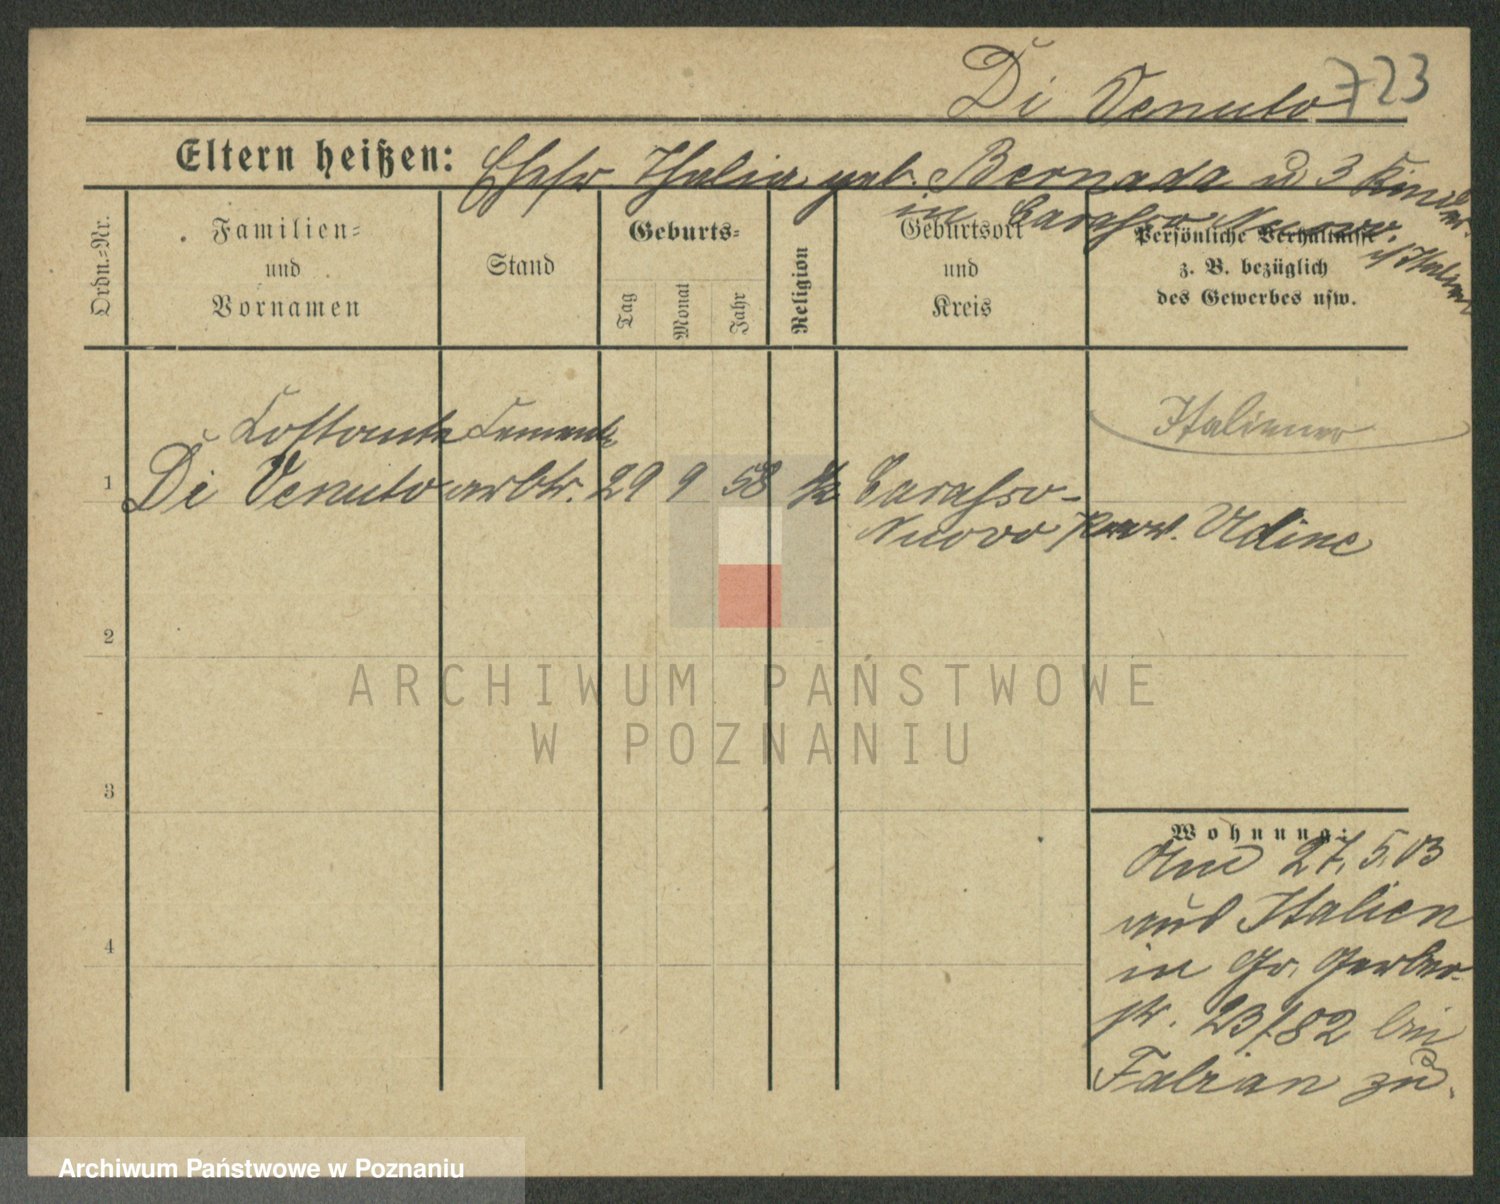 Di Venuto 723
Eltern heißen: Ehefr. Thalia geb. Bernada u 3 Kinder
in Carasso Nuovo.
i/ Italien
Ordn.-Nr.
Familien=
und
Vornamen
Stand
Geburts=
Tag
Monat
Jahr
Religion
Geburtsort
und
Kreis
Persönliche Verhältnisse
z. B. bezüglich
des Gewerbes usw.
Italiener
Costante Cement=
1 Di Venuto arbtr. 29 9 58 Carasso-
Nuovo Prov. Udine
2
3
4
Wohnung:
Am 27.5.03
aus Italien
in Gr. Gerber-
str. 23/82 bei
Fabian zu.
ARCHIWUM PAŃSTWOWE
W POZNANIU
Archiwum Państwowe w Poznaniu